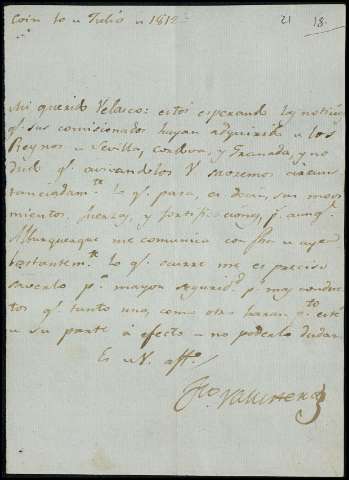 Coin 10 de Julio de 1812
21 18.
Mi querido Velasco: estoi esperando las notici
qe. sus comisionados hayan adquirido de los
Reynos de Sevilla, Cordova, y Granada, y no
dud qe. avisandolos V sabremos circuns
tanciadamte. lo qe. pasa, es decir, sus movi
mientos, fuerzas, y fortificaciones, aunqe.
Alburquerque me comunica con fha de ayer
bastantemte. lo qe. ocurre me es preciso
saverlo pr. mayor seguridd. pr. muy conduc
tos qe. tanto uno, como otro haran qto. esté
de su parte á efecto de no poderlo dudar.
Es de V. affo.
Fco. Vallesteros